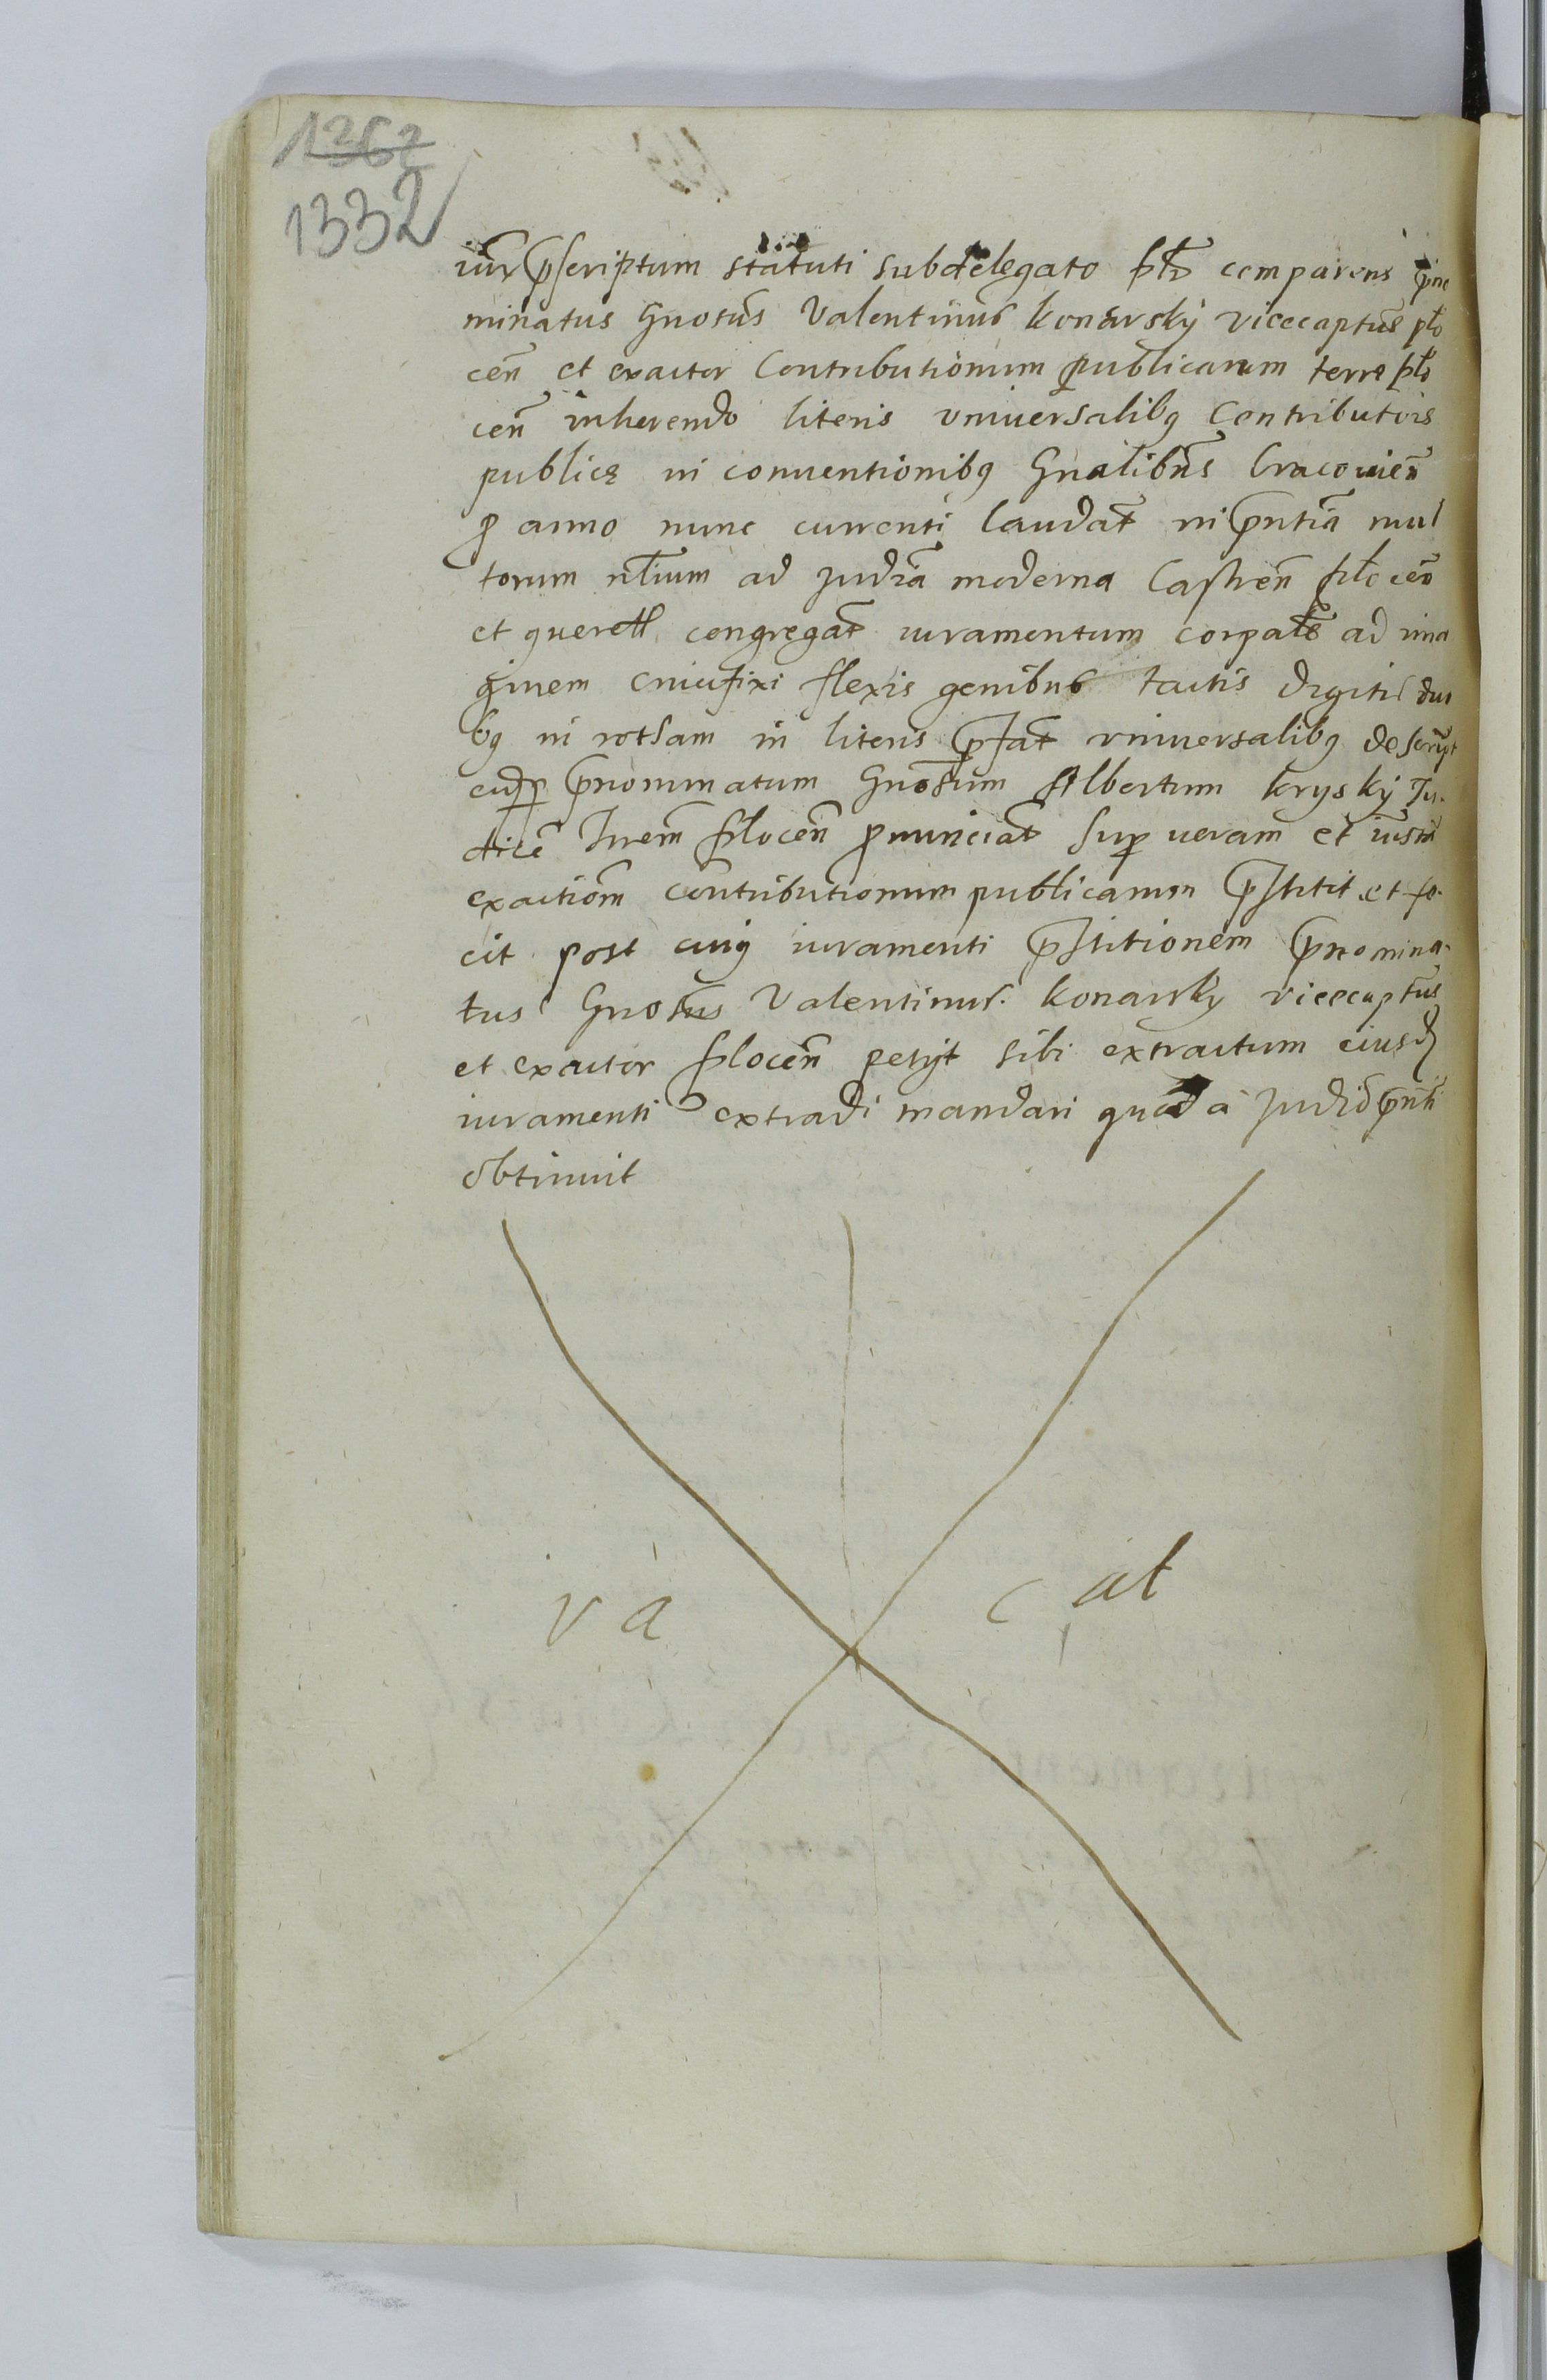 1362
1332
iur p̄scriptum statuti subdelegato comparens p̄no
minatus Gnosus Valentinus Konarsky vicecaptus plo
cen̄ et exactor Contributionum publicarum terre plo
cen̄ inherendo literis vniuersalibq Contributōis
publice in conuentionibq Gnalibus Cracouien̄
p anno nunc currenti laudat̄ in p̄ntia mul
torum nlium ad Judiā moderna Castren̄ plocen̄
et querell congregat̄ iuramentum corpale ad ima
ginem crucifixi flexis genibus tactis digitis duo
bq in rotham in literis p̄fat vniuersalibq descript
p̄nominatum Gnosum Albertum Krysky Ju.
dicē Trrem plocen̄ pnunciat̄ sup veram et iustā
exactiom̄ contributionum publicarum p̄stitit et fe.
cit post cuiq iuramenti p̄stitionem p̄nomina.
tus Gnosus Valentinus. Konarsky vicecaptus
et exactor plocen̄ petyt sibi extractum eiusd
iuramenti extradi mandari quod a Judiō p̄nti
obtinuit
va cat